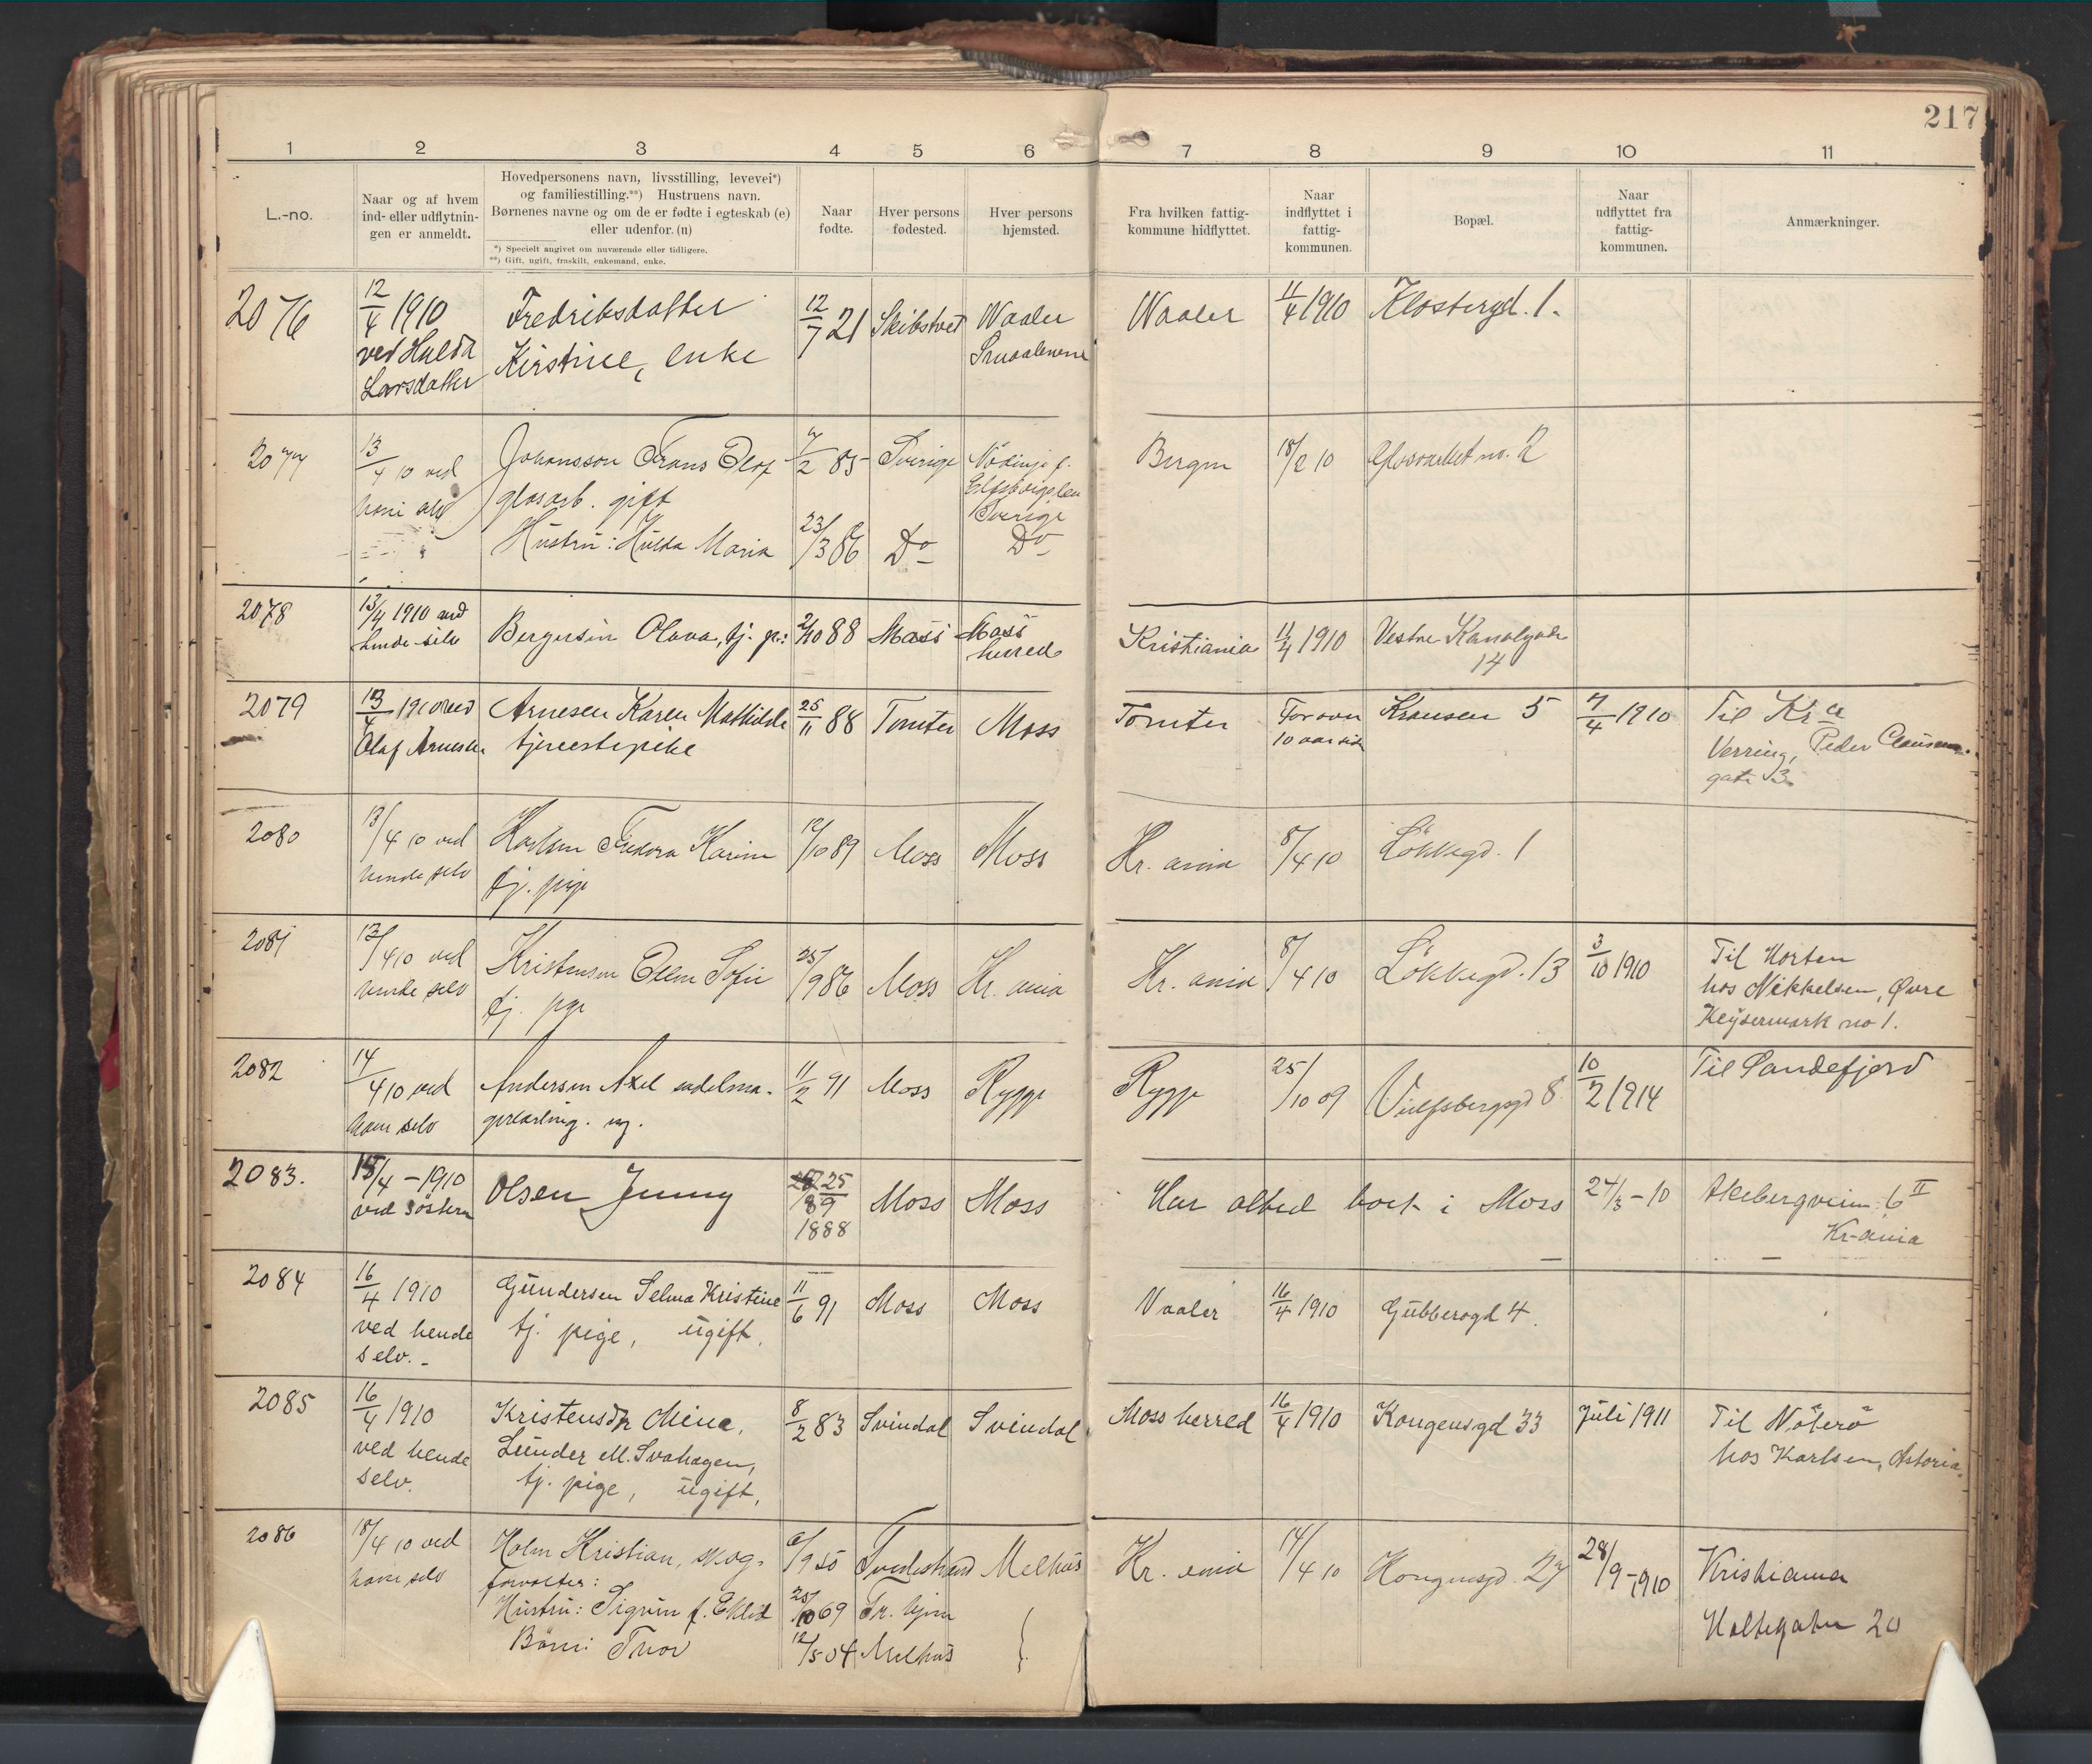 217
1 2 3 4 5 6 7 8 9 10 11
L.-no.
Naar og af hvem
ind- eller udflytnin-
gen er anmeldt.
Hovedpersonens navn, livsstilling, levevei*)
og familiestilling.**) Hustruens navn.
Børnenes navne og om de er fødte i egteskab (e)
eller udenfor. (u)
*) Specielt angivet om nuværende eller tidligere.
**) Gift, ugift, fraskilt, enkemand, enke.
Naar
fødte.
Hver persons
fødested.
Hver persons
hjemsted.
Fra hvilken fattig-
kommune hidflyttet.
Naar
indflyttet i
fattig-
kommunen.
Bopæl.
Naar
udflyttet fra
fattig-
kommunen.
Anmærkninger.
2076
12/4 1910
ved Hulda
Larsdatter
Fredriksdatter
Kirstine, enke
12/7 21
Skibstvet
Waaler
Smaalenene
Waaler
11/4 1910
Klostergd. 1.
2077
13/4 10 ved
ham selv
Johansson Frans Olof
glasarb. gift
Hustru: Hulda Maria
7/2 85
23/3 86
Sverige
Do
Sverige
Do
Bergen
18/2 10
Glasværket no. 2
2078
13/4 1910 ved
hende selv
Bergersen Olava, tj. p.:
2/10 88
Moss
Moss
herred
Kristiania
11/4 1910
Vestre Kanalgade
14
2079
13/4 1910 ved
Olaf Arnesen
Arnesen Karen Mathilde
tjenestepike
25/11 88
Tomter
Moss
Tomter
For over
10 aar siden
Kransen 5
7/4 1910
Til Kr.a
Verring, Peder Clausens
gate 3
2080
13/4 10 ved
hende selv
Karlsen Fredora Karine
tj. pige
12/10 89
Moss
Moss
Kr. ania
8/4 10
Løkkegd. 1
2081
13/4 10 ved
hende selv
Kristensen Ellen Sofie
tj. pge
25/9 86
Moss
Kr. ania
Kr. ania
8/4 10
Løkkegd. 13
3/10 1910
Til Horten
hos Nikkelsen, Øvre
Keysermark no 1.
2082
14/4 10 ved
ham selv
Andersen Axel sadelma-
gerlærling. ug.
11/2 91
Moss
Rygge
Rygge
25/10 09
Vulfsbergsgd 8
10/2 1914
Til Sandefjord
2083.
15/4 - 1910
ved søsteren
Olsen Jenny
25/9
1888
Moss
Moss
Har altid boet i Moss
24/3 - 10
Akebergveien 6 II
Kr-ania
2084
16/4 1910
ved hende
selv. -
Gundersen Selma Kristine
tj. pige, ugift,
11/6 91
Moss
Moss
Vaaler
16/4 1910
Gubberogd 4.
2085
16/4 1910
ved hende
selv.
Kristensdr Mina,
Lunder el. Svahagen,
tj. pige, ugift,
8/2 83
Svindal
Svindal
Moss herred
16/4 1910
Kongensgd 33
Juli 1911
Til Nøterø
hos Karlsen, Astoria.
2086
18/4 10 ved
ham selv
Holm Kristian, skog-
forvalter:
Hustru: Sigrun f. Eklid
Börn: Thor
6/9 55
25/10 69
12/5 04
Tvedestrand
Tr. hjem
Melhus
Melhus
}
Kr. ania
14/4 10
Kongensgd. 27
28/9 - 1910
Kristiania
Holtegaten 20